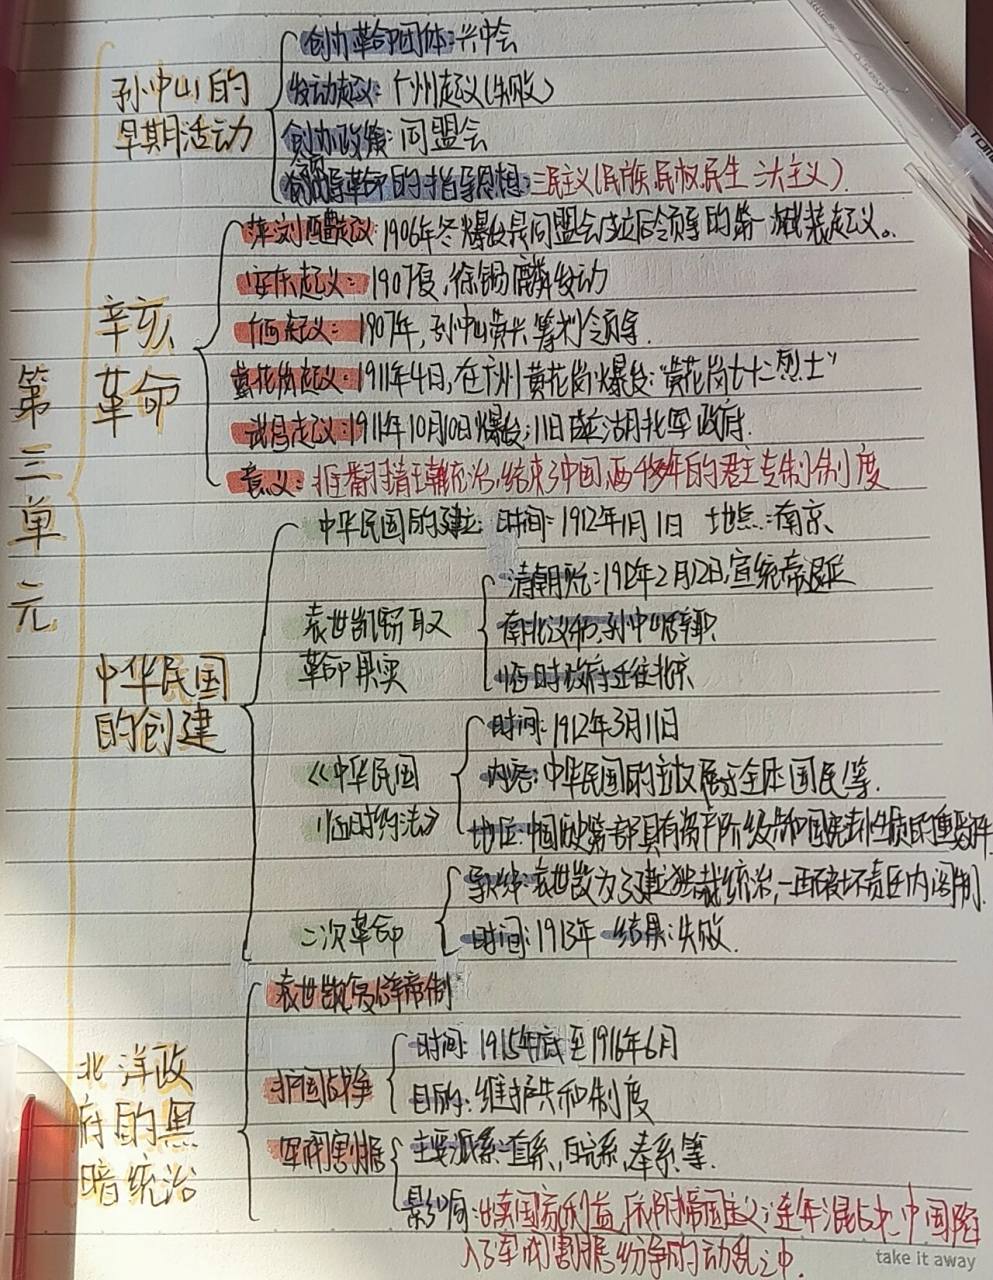 第三单元
孙中山的
早期活动
创办革命团体:兴中会
发动起义:广州起义(失败)
创办政党:同盟会
革命的指导思想:三民主义(民族,民权,民生三大主义).
辛亥
革命
萍浏醴起义:1906年冬爆发是同盟会成立后领导的第一次武装起义。
安庆起义:1907夏,徐锡麟发动
起义:1907年,孙中山黄兴筹划领导.
黄花岗起义:1911年4日,在广州黄花岗爆发;"黄花岗七十二烈士"
武昌起义:1911年10月10日爆发;11日成立湖北军政府.
意义:推翻清王朝统治,结束了中国两千多年的君主专制制度
中华民国
的创建
中华民国的建立:时间:1912年1月1日 地点:南京
袁世凯窃取
革命果实
清朝灭亡:1912年2月12日,宣统帝退位
南北议和,孙中山辞职
临时政府迁往北京
《中华民国
临时约法》
时间:1912年3月11日
内容:中华民国的主权属于全体国民等.
地位:中国历史第一部具有资产阶级共和国宪法性质的重要文件
二次革命
导火线:袁世凯为了建立独裁统治,一再破坏责任内阁制.
时间:1913年 结果:失败.
北洋政
府的黑
暗统治
袁世凯复辟帝制
护国战争
时间:1915年底至1916年6月
目的:维护共和制度
军阀割据
主要派系:直系,皖系,奉系等.
影响:出卖国家利益,依附帝国主义;连年混战中国陷
入了军阀割据纷争的动乱之中.
take it away